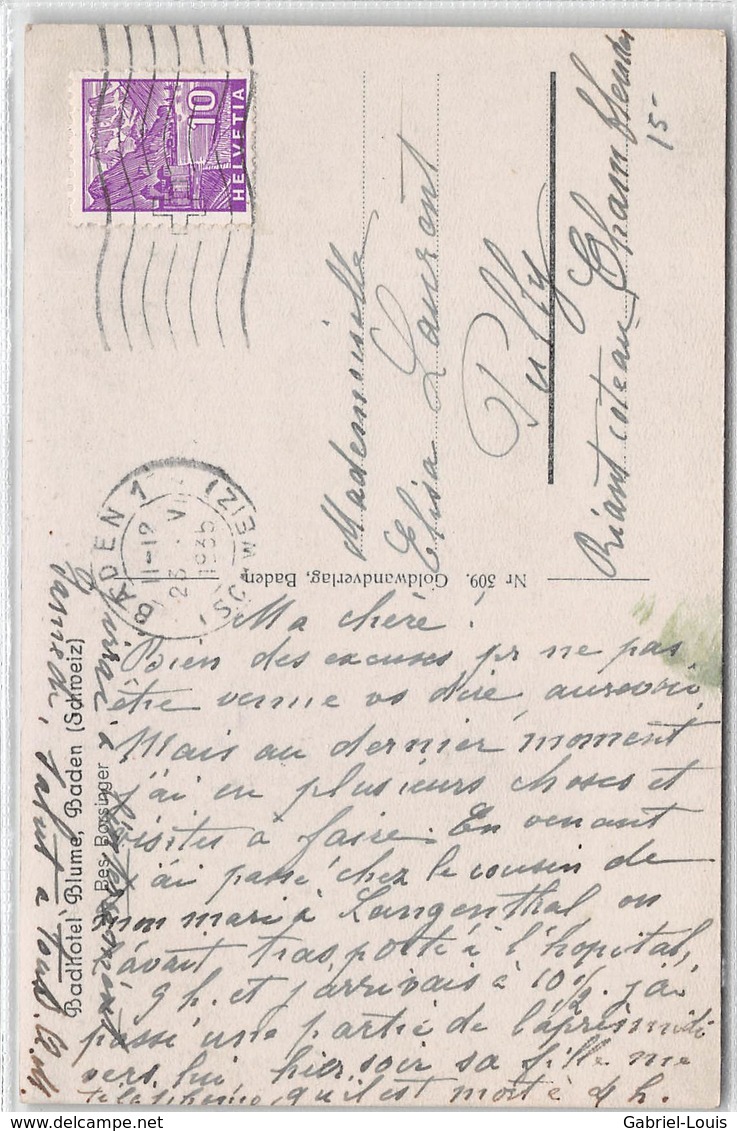 HELVETIA
10
BADEN 1
11-12
23. V
1935
(SCHWEIZ)
Mademoiselle
Elisa Laurent
Pully
Riant coteau Chamblandes
15-
Nr 309. Goldwandverlag, Baden
Badhotel Blume, Baden (Schweiz)
Bes. Borsinger
Ma chère!
Bien des excuses pr ne pas
être venue vs dire aurevoir,
Mais au dernier moment
j'ai eu plusieurs choses et
visites à faire. En venant
j'ai passé chez le cousin de
mon mari à Langenthal, on
l'avait trasporté à l'hopital,
9 h. et j'arrivais à 10 1/2. j'ai
passé une partie de l'aprèmidi
vers lui hier soir sa fille me
téléphone, qu'il est mort à 4 h.
à
Salut à tous.
Gabriel-Louis